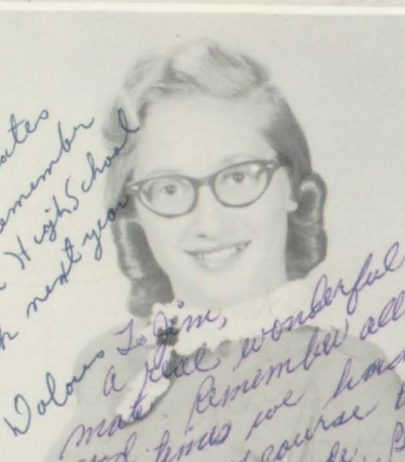 remember
High School
next year
Dolores
To Jim,
A real wonderful
mate. Remember all
times we
course